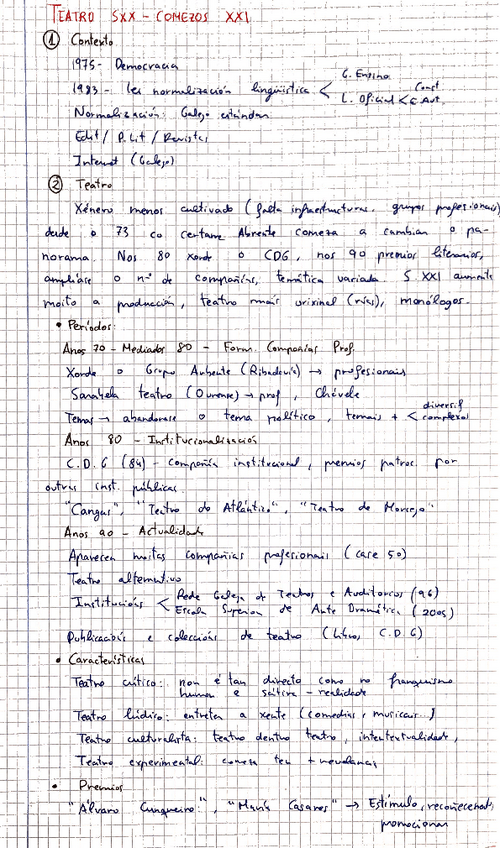 TEATRO SXX - COMEZOS XXI
① Contexto
1975 - Democracia
1983 - Lei normalización lingüística < L. Ensino
L. Oficial < Const
E. Aut.
Normalización: Galego estándar
Edit / P. Lit / Revistas
Internet (Galego)
② Teatro
Xénero menos cultivado (falta infraestructuras, grupos profesionais)
dende o 73 co certame Abrente comeza a cambiar o pa-
norama. Nos 80 xorde o CDG, nos 90 premios literarios,
ampliase o nº de compañías, temática variada. S. XXI aumenta
moito a producción, teatro máis orixinal (rúas), monólogos.
• Períodos:
Anos 70 - Mediados 80 - Form. Compañías Prof.
Xorde o Grupo Abrente (Ribadavia) → profesionais
Sarabela teatro (Ourense) → prof, Chévele
Temas → abandonase o tema político, temas + < diversif
complexos
Anos 80 - Institucionalización
C.D.G (84) - compañía institucional, premios patroc. por
outras inst. públicas.
"Cangas", "Teatro do Atlántico", "Teatro de Morcego"
Anos 90 - Actualidade
Aparecen moitas compañías profesionais (case 50)
Teatro alternativo
Institucións < Rede Galega de Teatros e Auditorios (96)
Escola Superior de Arte Dramática (2005)
Publicacións e coleccións de teatro (libros, C.D.G)
• Características
Teatro crítico: non é tan directo como no franquismo
humor e sátira - realidade
Teatro lúdico: entreter a xente (comedias, musicais..)
Teatro culturalista: teatro dentro teatro, intertextualidade,
Teatro experimental: comeza ter + relevancia
• Premios
"Álvaro Cunqueiro", "María Casares" → Estímulo, recoñecemento,
promocionar